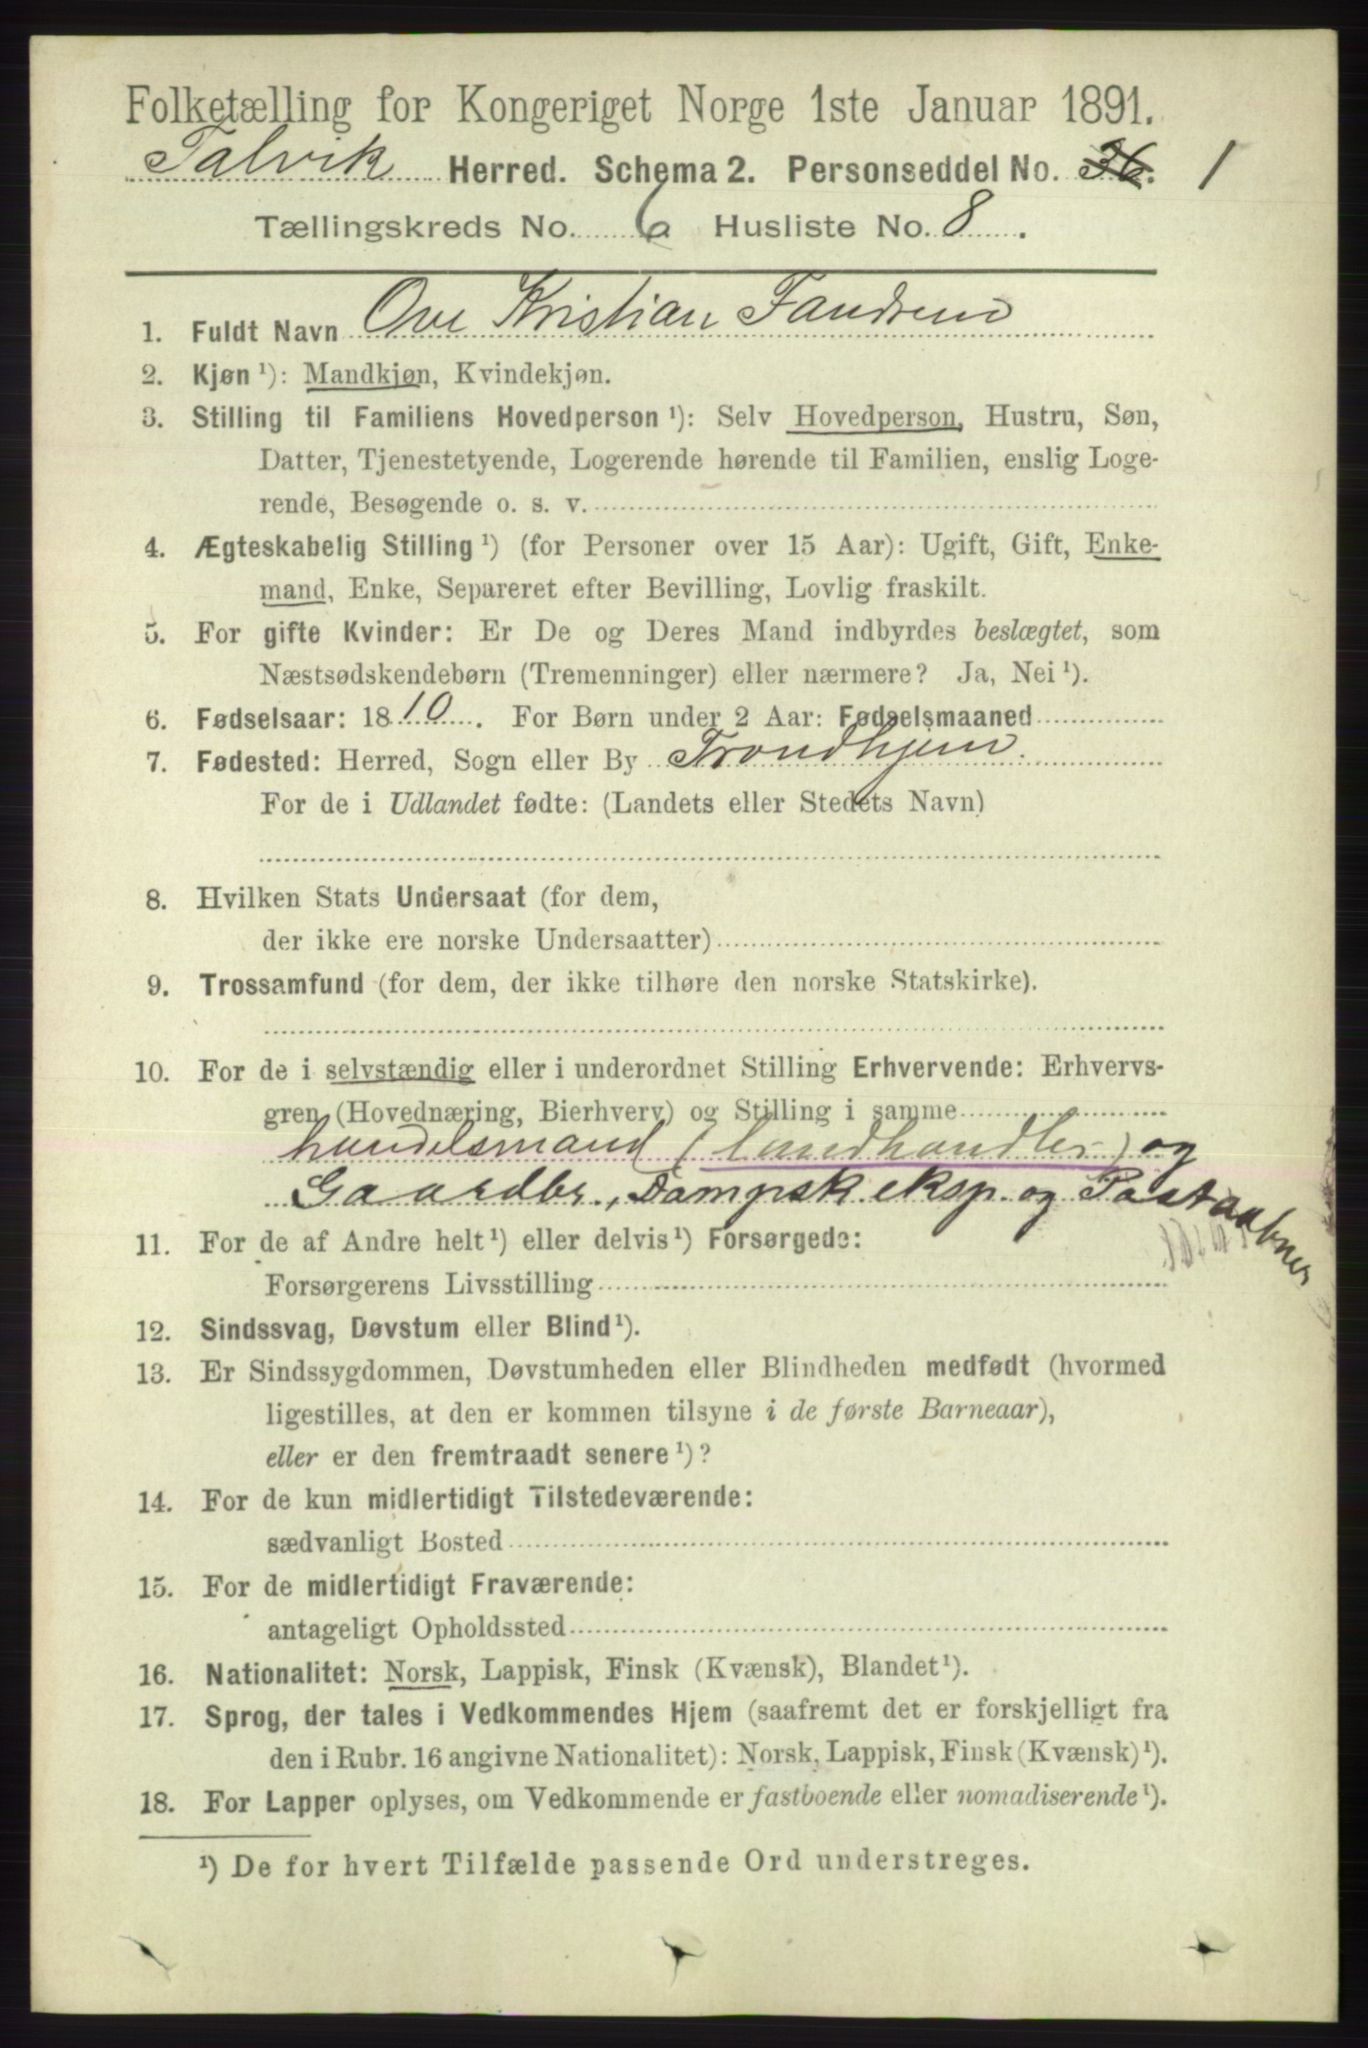 Folketælling for Kongeriget Norge 1ste Januar 1891.
Talvik Herred. Schema 2. Personseddel No. 36. 1
Tællingskreds No. 6 Husliste No. 8.
1. Fuldt Navn Ove Kristian Fandrem
2. Kjøn ¹): Mandkjøn, Kvindekjøn.
3. Stilling til Familiens Hovedperson ¹): Selv Hovedperson, Hustru, Søn,
Datter, Tjenestetyende, Logerende hørende til Familien, enslig Loge-
rende, Besøgende o. s. v.
4. Ægteskabelig Stilling ¹) (for Personer over 15 Aar): Ugift, Gift, Enke-
mand, Enke, Separeret efter Bevilling, Lovlig fraskilt.
5. For gifte Kvinder: Er De og Deres Mand indbyrdes beslægtet, som
Næstsødskendebørn (Tremenninger) eller nærmere? Ja, Nei ¹).
6. Fødselsaar: 1810. For Børn under 2 Aar: Fødselsmaaned
7. Fødested: Herred, Sogn eller By Trondhjem.
For de i Udlandet fødte: (Landets eller Stedets Navn)
8. Hvilken Stats Undersaat (for dem,
der ikke ere norske Undersaatter)
9. Trossamfund (for dem, der ikke tilhøre den norske Statskirke).
10. For de i selvstændig eller i underordnet Stilling Erhvervende: Erhvervs-
gren (Hovednæring, Bierhverv) og Stilling i samme
handelsmand (landhandler) og
Gaardbr., Dampsk eksp. og Postaabner
11. For de af Andre helt ¹) eller delvis ¹) Forsørgede:
Forsørgerens Livsstilling
12. Sindssvag, Døvstum eller Blind ¹).
13. Er Sindssygdommen, Døvstumheden eller Blindheden medfødt (hvormed
ligestilles, at den er kommen tilsyne i de første Barneaar),
eller er den fremtraadt senere ¹)?
14. For de kun midlertidigt Tilstedeværende:
sædvanligt Bosted
15. For de midlertidigt Fraværende:
antageligt Opholdssted
16. Nationalitet: Norsk, Lappisk, Finsk (Kvænsk), Blandet ¹).
17. Sprog, der tales i Vedkommendes Hjem (saafremt det er forskjelligt fra
den i Rubr. 16 angivne Nationalitet): Norsk, Lappisk, Finsk (Kvænsk) ¹).
18. For Lapper oplyses, om Vedkommende er fastboende eller nomadiserende ¹).
¹) De for hvert Tilfælde passende Ord understreges.